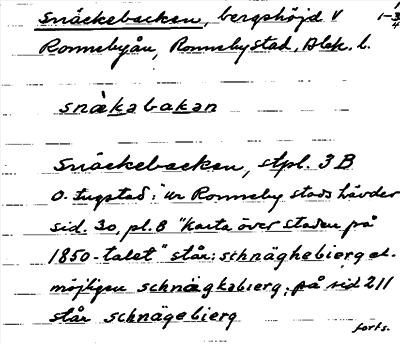 Snäckebacken, bergshöjd V 1-3/4
Ronnebyån, Ronneby stad, Blek. l.
snàkabakan
Snäckebacken, stpl. 3 B
O. Tugstad: "Ur Ronneby stads hävder
sid. 30, pl. 8 "Karta över staden på
1850-talet" står: schnäghebierg el.
möjligen schnägkabierg. på sid 211
står schnägebierg
forts.